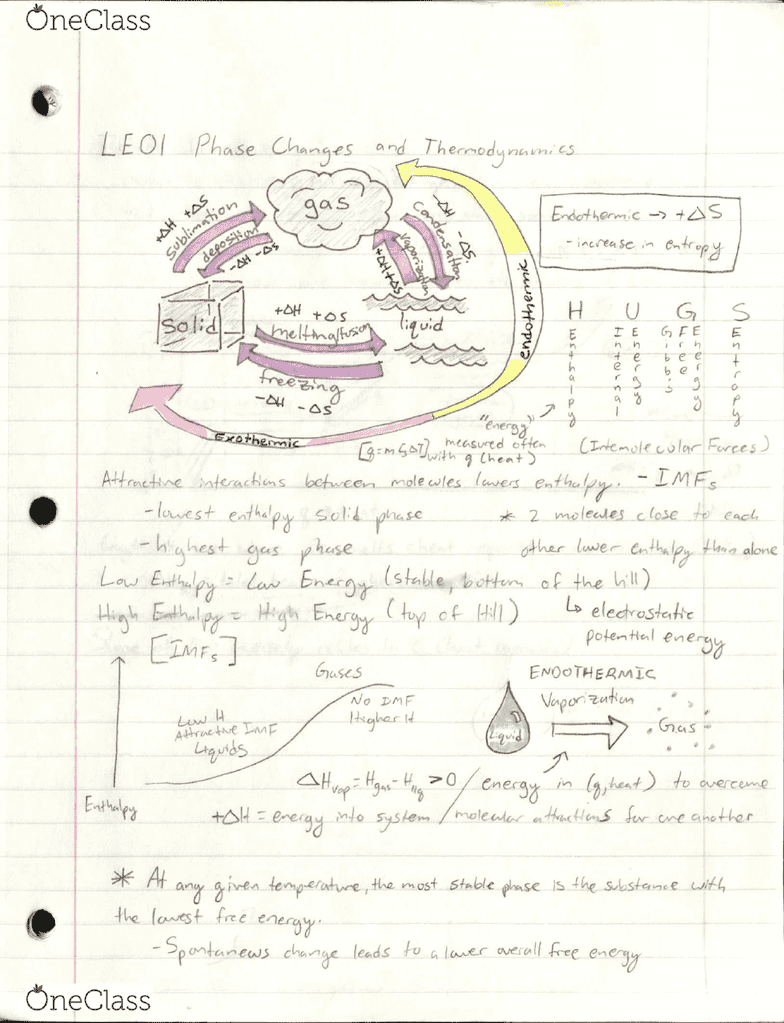 OneClass
LE01 Phase Changes and Thermodynamics
gas
+ΔH +ΔS
Sublimation
deposition
-ΔH -ΔS
-ΔH -ΔS
Condensation
Vaporization
+ΔH +ΔS
Endothermic → +ΔS
- increase in entropy
Solid
+ΔH +ΔS
melting/fusion
liquid
freezing
-ΔH -ΔS
endothermic
Exothermic
H U G S
Enthalpy
Internal Energy
Gibb's Free Energy
Entropy
"energy"
[q=mςΔT] measured often
with q (heat)
(Intemolecular Forces)
Attractive interactions between molecules lowers enthalpy. - IMFs
- lowest enthalpy solid phase
* 2 molecules close to each
- highest gas phase
other lower enthalpy than alone
Low Enthalpy = Low Energy (stable, bottom of the hill)
High Enthalpy = High Energy (top of Hill)
↳ electrostatic
potential energy
[IMFs]
Gases
No IMF
Higher H
Low H
Attractive IMF
Liquids
Enthalpy
ENDOTHERMIC
Vaporization
Liquid
Gas
ΔHvap = Hgas - Hliq > 0 / energy in (q, heat) to overcome
+ΔH = energy into system / molecular attractions for one another
* At any given temperature, the most stable phase is the substance with
the lowest free energy.
- Spontaneous change leads to a lower overall free energy
OneClass